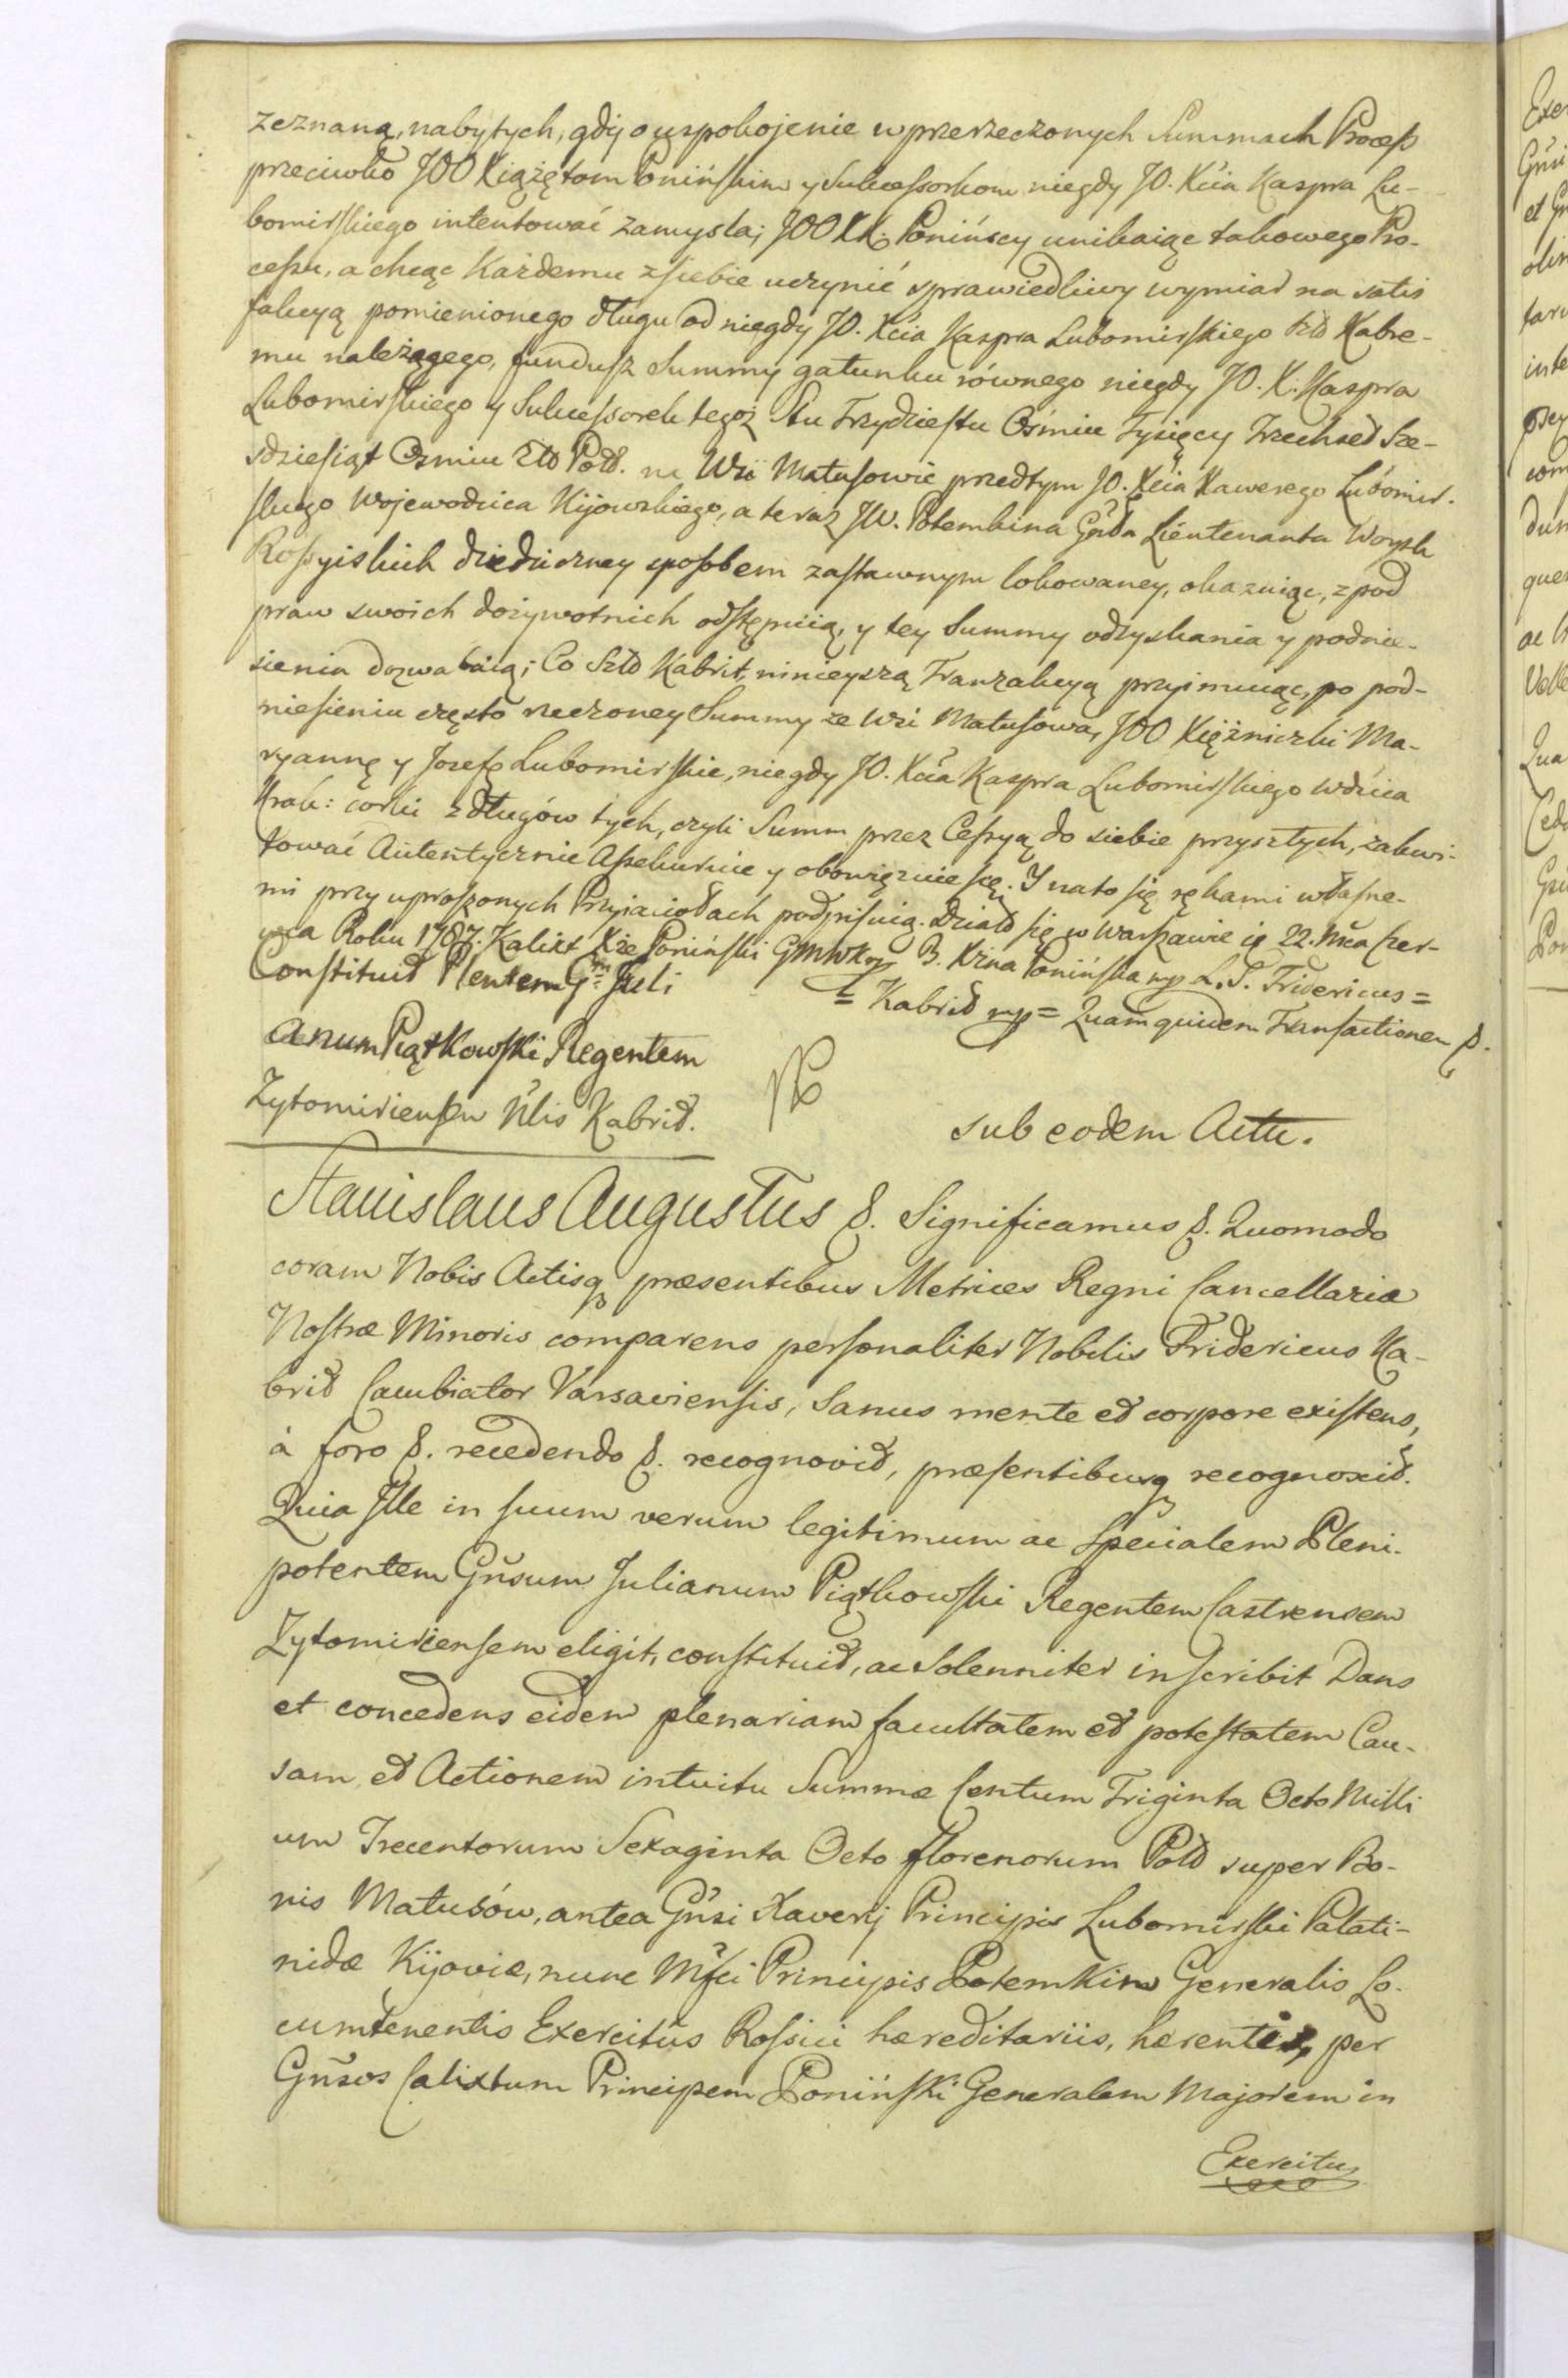 zeznaną, nabytych, gdy o uspokojenie w przerzeczonych Summach Proceß
przeciwko JOO Xiążętom Ponińskim y Sukceßorkom niegdy JO. Xcia Kaspra Lu-
bomirskiego intentować zamysla; JOO XX. Ponińscy unikaiąc takowego Pro-
ceßu, a chcąc Każdemu z siebie uczynić sprawiedliwy wymiar na satis
fakcyą pomienionego długu od niegdy JO. Xcia Kaspra Lubomirskiego Kabre-
mu należącego, fundusz Summy gatunku równego niegdy JO. X. Kaspra
Lubomirskiego y Sukceßorek tegoż Stu Trzydziestu Ośmiu Tysięcy Trzechset Sze-
sdziesiąt Osmiu Zło Pols. na Wsi Matusowie przedtym JO. Xcia Xawerego Lubomir-
skiego Wojewodzica Kijowskiego, a teraz JW. Potemkina Gnła Lieutenanta Woysk
Roßyiskich dziedziczney sposobem zastawnym lokowaney, okazuiąc, z pod
praw swoich dożywotnich odstępuią, y tey Summy odzyskania y podnie-
sienia dozwalaią; Co Szło Kabrit, ninieyszą Tranzakcyą przyimuiąc, po pod-
niesieniu często rzeczoney Summy ze Wsi Matusowa, JOO Xiężniczki Ma-
ryannę y Jozefę Lubomirskie, niegdy JO. Xcia Kaspra Lubomirskiego Wdźica
Krak: corki z długów tych, czyli Summ przez Ceßyą do siebie przyszłych, zakwi-
tować Autentycznie Aßekuruie y obowięzuie się. I na to się rękami własne-
mi przy uproszonych Przyiaciołach podpisuią. Działo się w Warszawie d. 22. Mca Czer-
wca Roku 1787. Kalixt Xże Poniński GMWKor B. Xżna Ponińska mp L.S. Fridericus =
= Kabrid mp = Quam quidem Transactionem &.
Constituit Plentem Gm Juli
anum Piątkowski Regentem
Zytomiriensen Nlis Kabrid.
sub eodem Actu.
Stanislaus Augustus &. Significamus &. Quomodo
coram Nobis Actisq præsentibus Metrices Regni Cancellariæ
Nostræ Minoris comparens personaliter Nobilis Fridericus Ka-
brid Cambiator Varsaviensis, Sanus mente et corpore existens,
à foro &. recedendo &. recognovit, præsentibusq recognoscit.
Quia Ille in suum verum legitimum ac Specialem Pleni-
potentem Gnsum Julianum Piątkowski Regentem Castrensem
Zytomiriensem eligit, constituit, ac Solenniter inscribit Dans
et concedens eidem plenariam facultatem et potestatem Cau-
sam et Actionem intuitu Summæ Centum Triginta Octo Milli
um Trecentorum Sexaginta Octo florenorum Pold super Bo-
nis Matusów, antea Gnsi Xaverij Principis Lubomirski Palati-
nidæ Kijoviæ, nunc Mfci Principis Potemkin Generalis Lo-
cumtenentis Exercitûs Roßici hæreditariis, hærentis, per
Gnsos Calixtum Principem Poniński Generalem Majorem in
Exercitu